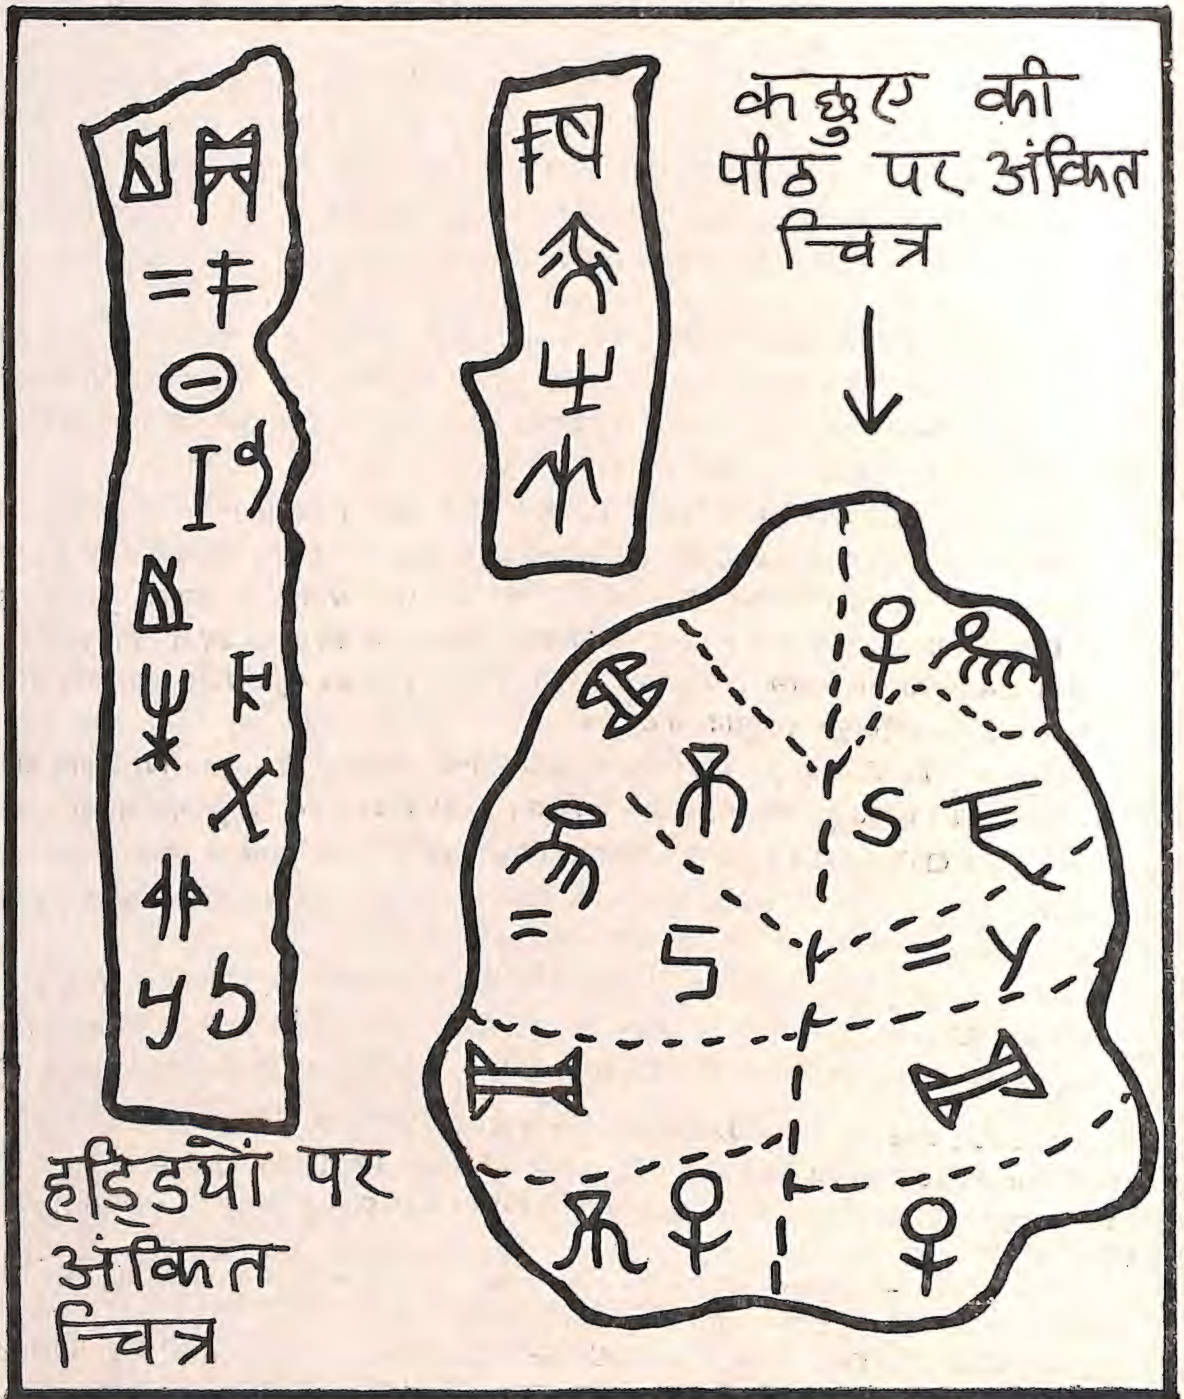 कछुए की
पीठ पर अंकित
चित्र
हड्डियों पर
अंकित
चित्र